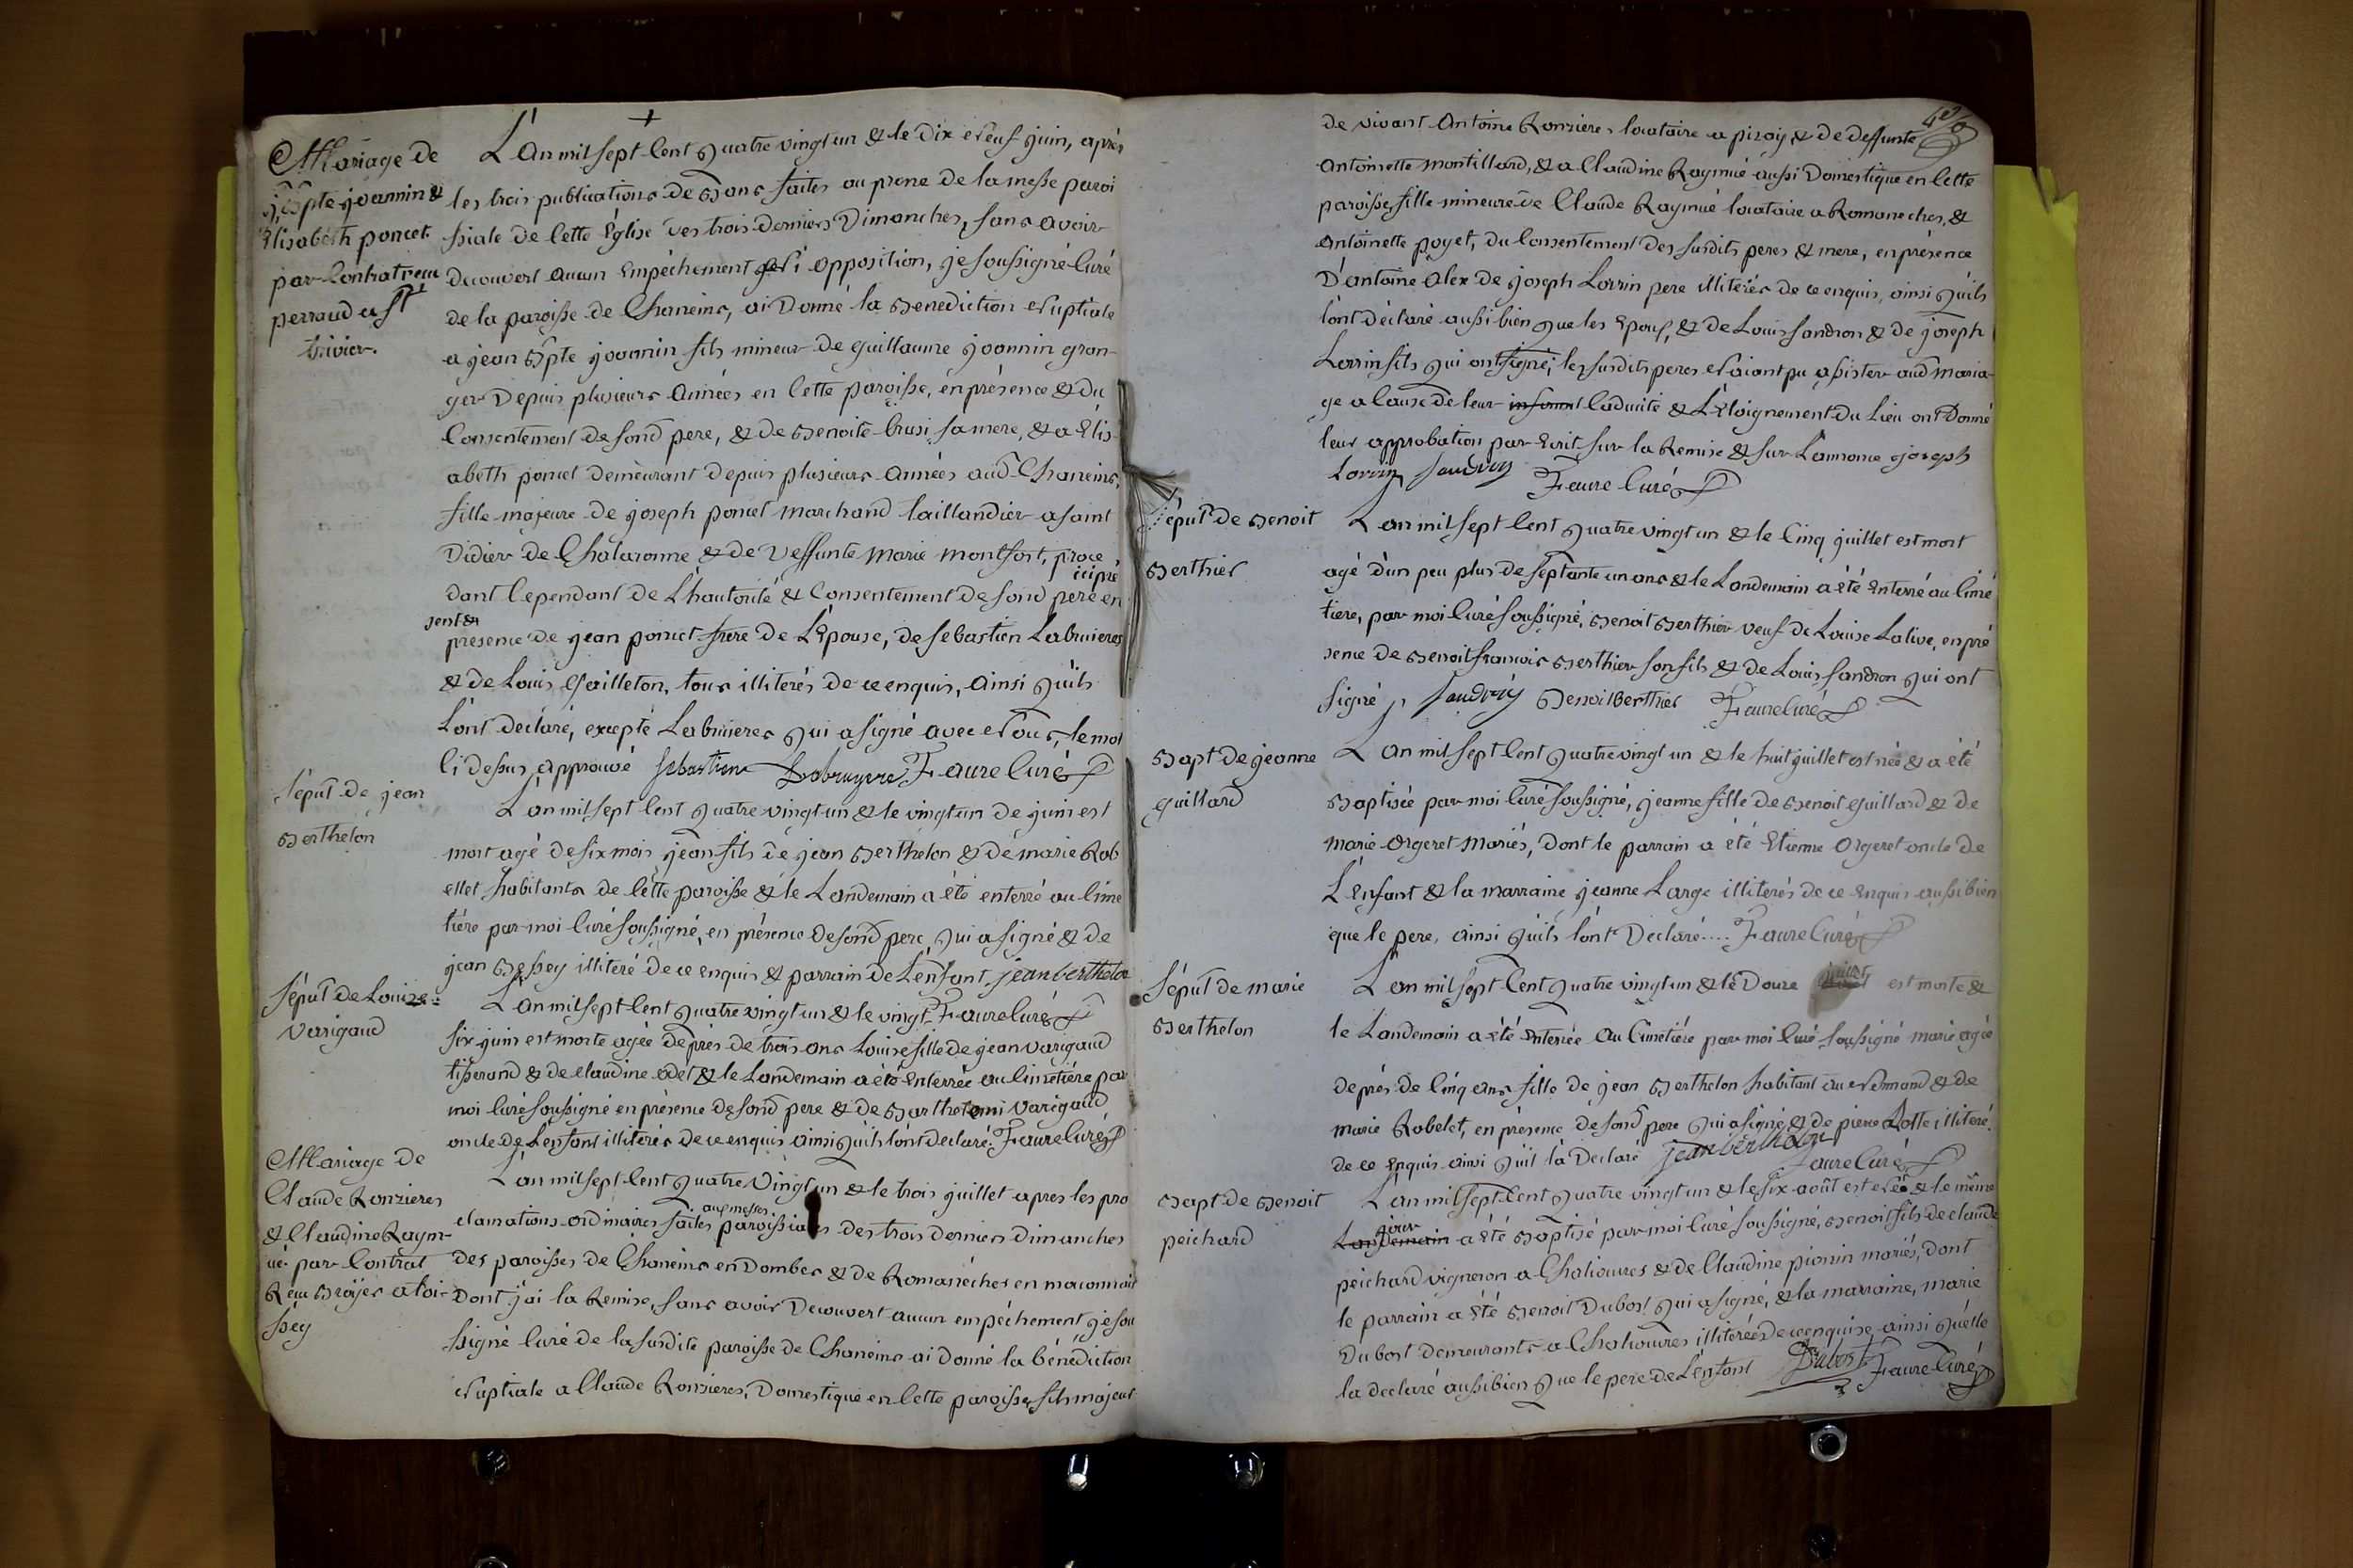 Mariage de
j, Bpte joannin &
Elisabeth poncet
par Contrat reçu
perraud a St
trivier.
L'An mil sept Cent Quatre vingt un & le Dix Neuf juin, après
les trois publications de Bans faites au prone de la messe paroi
ssiale de Cette Église les trois derniers Dimanches, sans avoir
decouvert aucun Empêchement Ni opposition, je soussigné Curé
de la paroisse de Chaneins, ai Donné la Benediction Nuptiale
a jean Bpte joannin fils mineur de guillaume joannin gran-
ger Depuis plusieurs Années en Cette paroisse, en présence & du
Consentement de sond pere, & de Benoite brusi sa mere, & a Elis-
abeth poncet demeurant depuis plusieurs années aud Chaneins,
fille majeure de joseph poncet marchand taillandier a saint
Didier de Chalaronne & de Deffunte marie montfort, proce
dant Cependant de L'hautorité & Consentement de sond pere ici pré en
sent &
présence de jean poncet frere de L'Epouse, de sebastien Labruieres
& de Louis Gailleton, tous illiterés de ce enquis, Ainsi Quils
L'ont declaré, excepté Labruieres Qui a signé avec Nous, le mot
Ci dessus approuvé sebastien Labruyere Faure Curé
sépult de jean
Berthelon
L'an mil sept Cent Quatre vingt un & le vingt un de juin est
mort agé de six mois jean fils de jean Berthelon & de marie Rob
ellet habitants de Cette paroisse & le Landemain a été enterré au Cime
tière par moi Curé soussigné, en présence de sond pere Qui a signé & de
jean Bessey illiteré de ce enquis & parrain de L'enfant. jean berthelon
sépult de Louise
Varigaud
L'an mil sept Cent Quatre vingt un & le vingt Faure Curé
six juin est morte agée de près de trois ans Louise fille de jean varigaud
tisserand & de claudine Odet & le Landemain a été Enterrée au Cimetière par
moi Curé soussigné en présence de sond pere & de Barthelemi Varigaud
oncle de L'enfant illiterés de ce enquis ainsi Quils L'ont declaré. Faure Curé
Mariage de
Claude Ronzieres
& Claudine Raym-
ué par Contrat
Reçu Brojer a toi-
ssey
L'an mil sept Cent Quatre Vingt un & le trois juillet apres les pro
clamations ordinaires faites aux messes paroissiales des trois derniers dimanches
des paroisses de Chaneins en Dombes & de Romanéches en maconnois
Dont j'ai la Remise, sans avoir Decouvert aucun empêchement je sou
ssigné Curé de la susdite paroisse de Chaneins ai Donné la bénédiction
Nuptiale a Claude Ronzieres, Domestique en Cette paroisse, fils majeur
de vivant Antoine Ronzieres locataire a pizay & de deffunte
Antoinette montillard, & a Claudine Raymué aussi Domestique en Cette
paroisse, fille mineure de Claude Raymué locataire a Romaneches, &
Antoinette poyet, du Consentement des susdits peres & mere, en présence
D'antoine Alex de joseph Lorrin pere illiterés de ce enquis, ainsi Quils
l'ont déclaré aussi bien que les Epoux, & de Louis sandron & de joseph
Lorrin fils qui ont signé, les susdits peres N'aiant pu assister aud maria-
ge a Cause de leur Caducité & L'Eloignement du Lieu ont Donné
leur approbation par Ecrit sur la Remise & sur L'annonce joseph
Lorrin sandron Faure Curé
sépult de Benoit
Berthier
L'an mil sept Cent Quatre vingt un & le Cinq juillet est mort
agé d'un peu plus de septante un ans & le Landemain a été Enterré au Cimé
tiere, par moi Curé soussigné, Benoit Berthier veuf de Louise Lalive, en pré
sence de Benoit francois Berthier son fils & de Louis sandron Qui ont
signé, sandron Benoit Berthier Faure Curé
Bapt de jeanne
guillard
L'an mil sept Cent Quatre vingt un & le huit juillet est née & a été
Baptisée par moi Curé soussigné, jeanne fille de Benoit guillard & de
marie Orgeret Mariés, Dont le parrain a été Etienne Orgeret oncle de
L'Enfant & la marraine jeanne Large illiterés de ce Enquis aussi bien
que le pere, Ainsi Quils l'ont Declaré.... Faure Curé
sépult de marie
Berthelon
L'an mil sept Cent Quatre vingt un & le Douze juillet est morte &
le Landemain a été Enterrée Au Cimetiére par moi Curé soussigné marie agée
de prés de Cinq ans fille de jean Berthelon habitant au Nomand & de
Marie Robelet, en présence de sond pere Qui a signé, & de pierre Lotte illiteré
de ce Enquis ainsi Quil la Declaré jean berthelon
Faure Curé
Bapt de Benoit
peichard
L'an mil sept Cent Quatre vingt un & le six août est Né & le même
Landemain jour a été Baptisé par moi Curé soussigné, Benoit fils de claude
peichard vigneron a Chaliouvres & de Claudine pionin mariés, Dont
le parrain a été Benoit Dubost Qui a signé, & la marraine, marie
Dubost demeurants a Chaliouvres illiterée de ce enquise, ainsi Quelle
la declaré aussi bien Que le pere de L'enfant Dubost Faure Curé